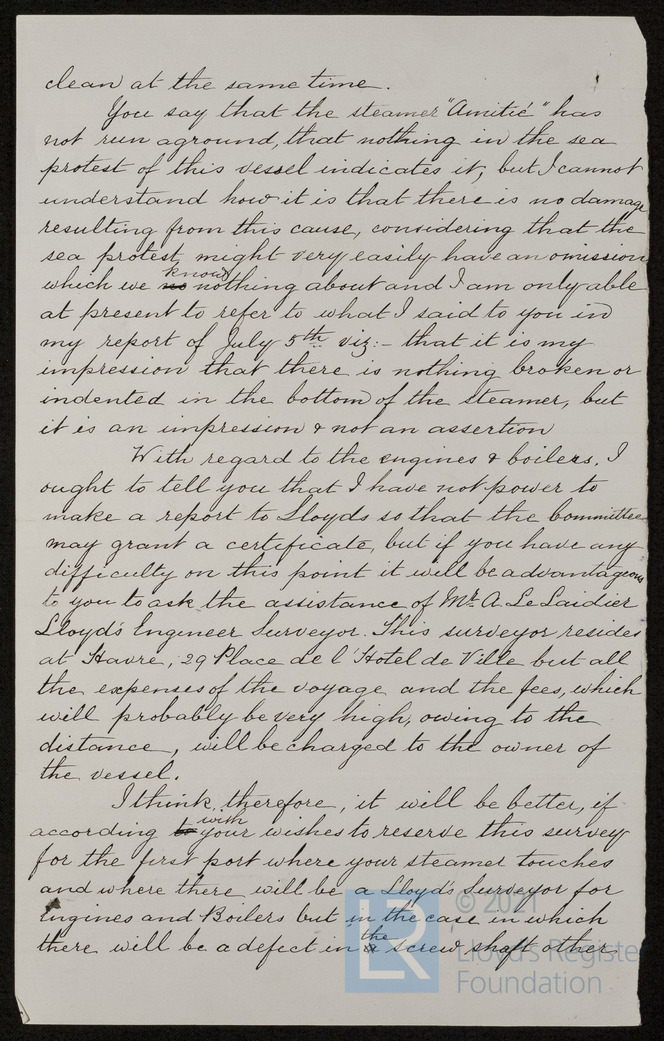 clean at the same time.
You say that the steamer "Amitié" has
not run aground, that nothing in the sea
protest of this vessel indicates it, but I cannot
understand how it is that there is no damage
resulting from this cause, considering that the
sea protest might very easily have an omission
know
which we no nothing about and I am only able
at present to refer to what I said to you in
my report of July 5th viz:- that it is my
impression that there is nothing broken or
indented in the bottom of the steamer, but
it is an impression & not an assertion
With regard to the engines & boilers, I
ought to tell you that I have not power to
make a report to Lloyds so that the Committee
may grant a certificate, but if you have any
difficulty on this point it will be advantageous
to you to ask the assistance of Mr. A. Le Laidier
Lloyd's Engineer Surveyor. This surveyor resides
at Havre, 29 Place de l'Hotel de Ville but all
the expenses of the voyage and the fees, which
will probably be very high, owing to the
distance, will be charged to the owner of
the vessel.
I think, therefore, it will be better, if
with
according to your wishes to reserve this survey
for the first port where your steamer touches
and where there will be a Lloyd's Surveyor for
Engines and Boilers but in the case in which
the
there will be a defect in a screw shaft other
LR
© 2021
Lloyd's Register
Foundation